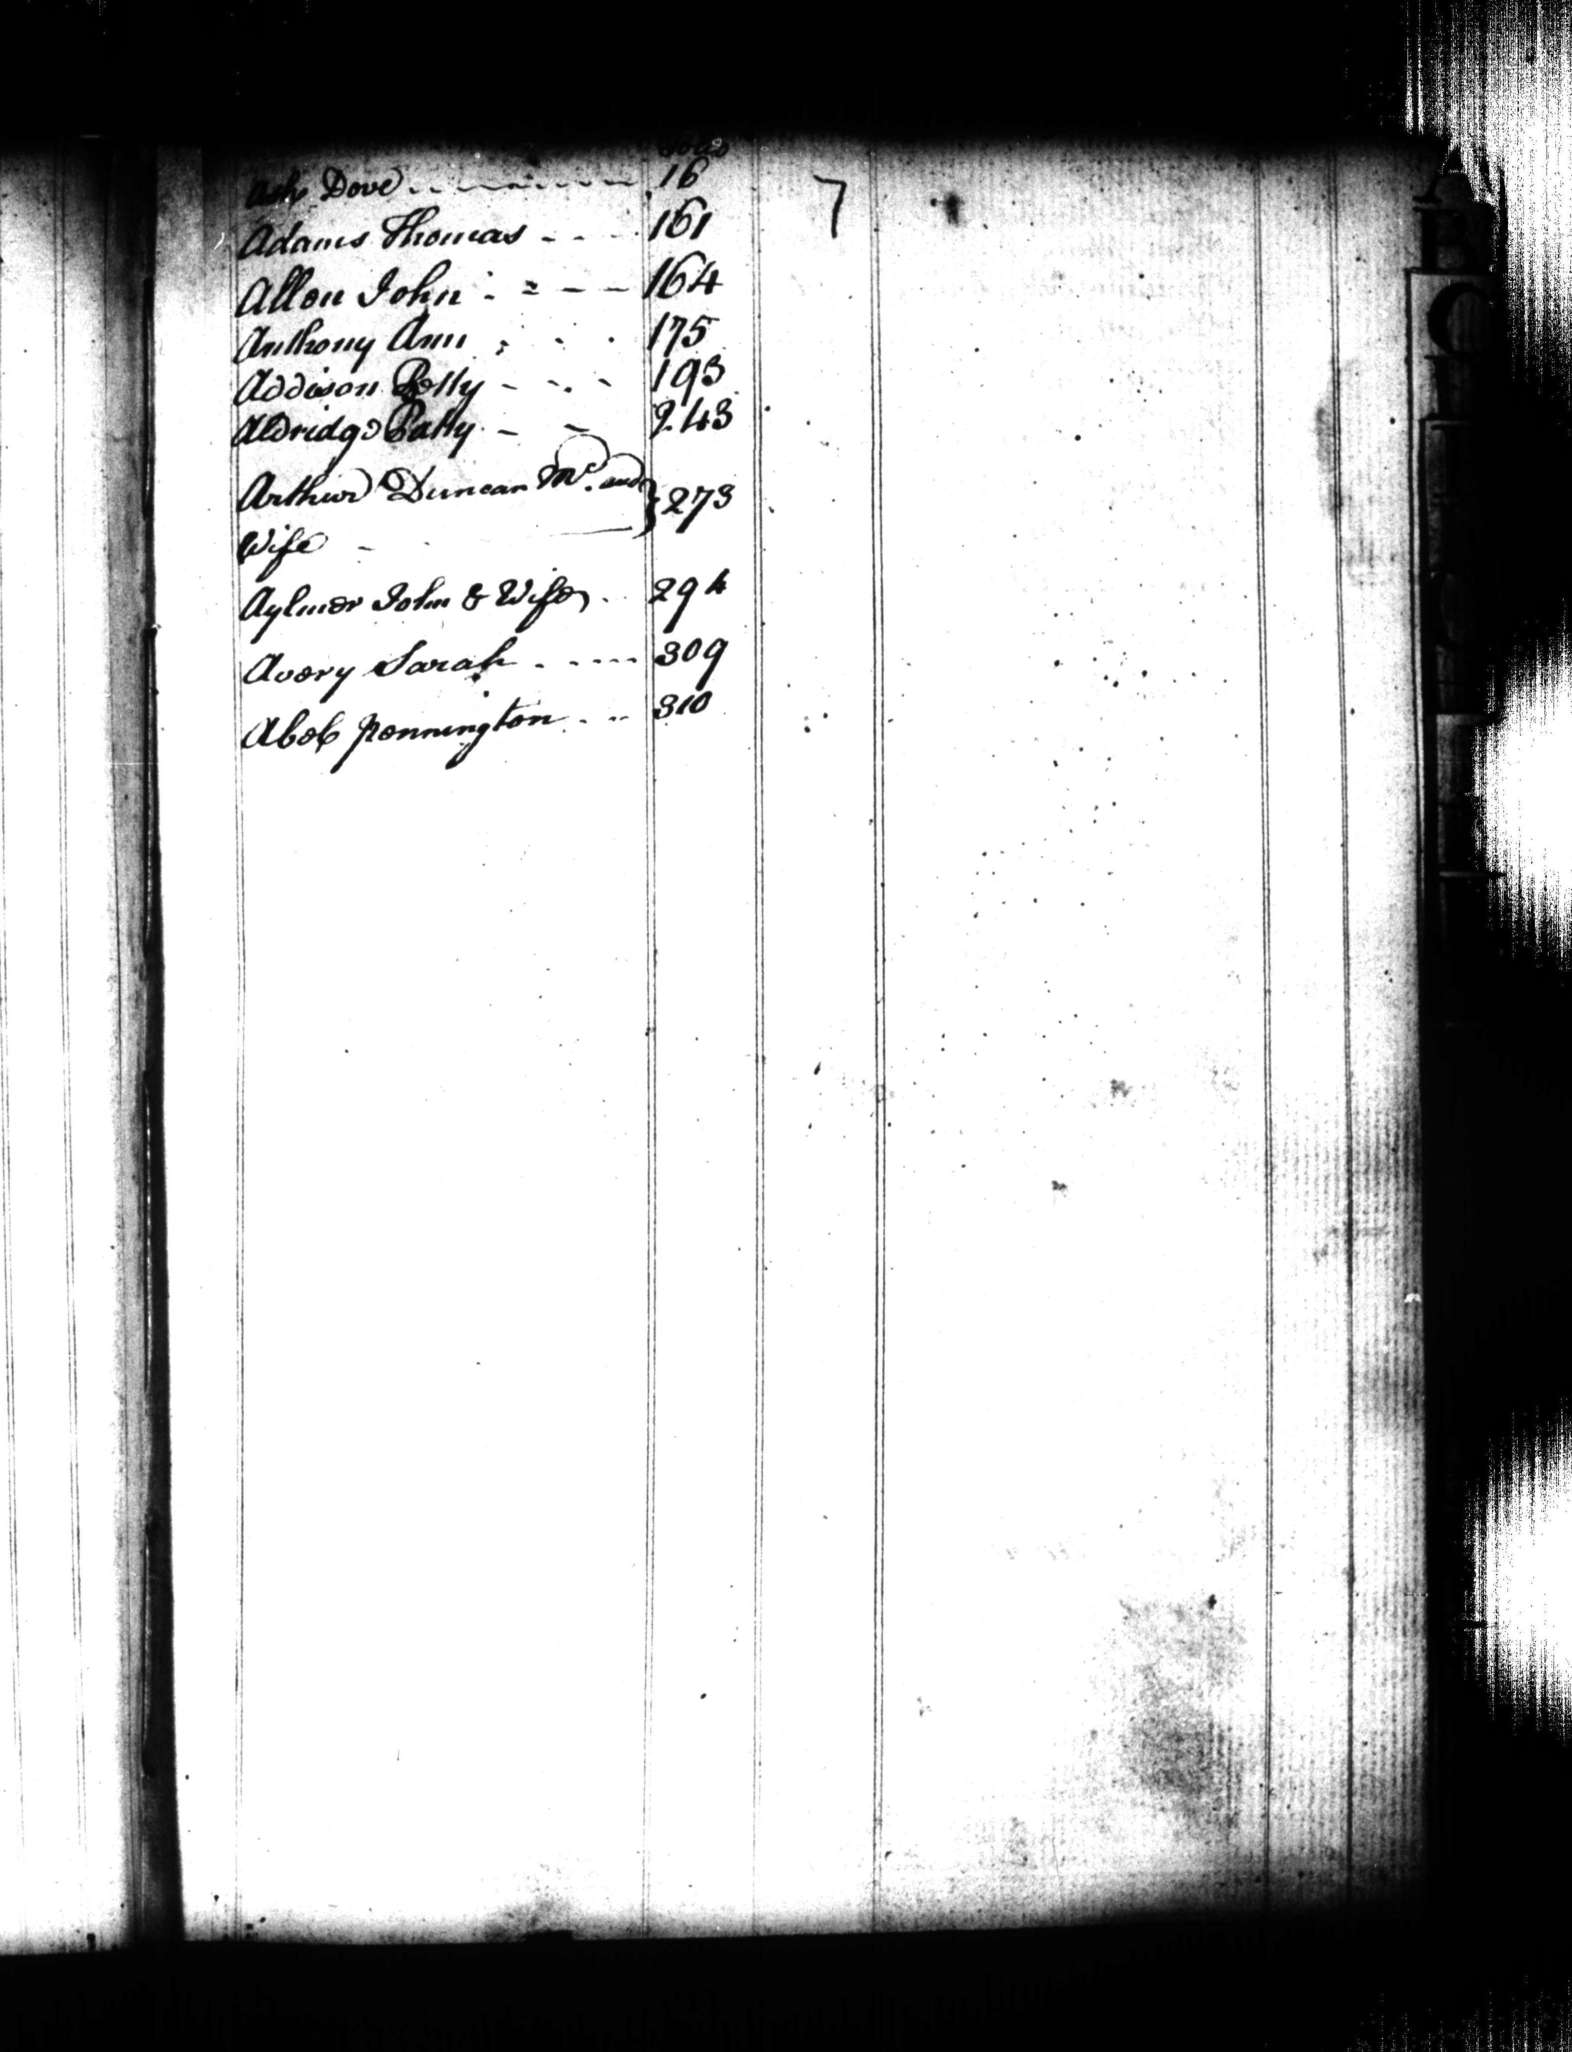 Ash Dove 16
7
Adams Thomas 161
Allen John 164
Anthony Ann 175
Addison Polly 193
Aldridge Patty 243
Arthur Duncan Mc. and } 273
Wife
Aylmer John & Wife 294
Avery Sarah 309
Abel Pennington 310
A
B
C